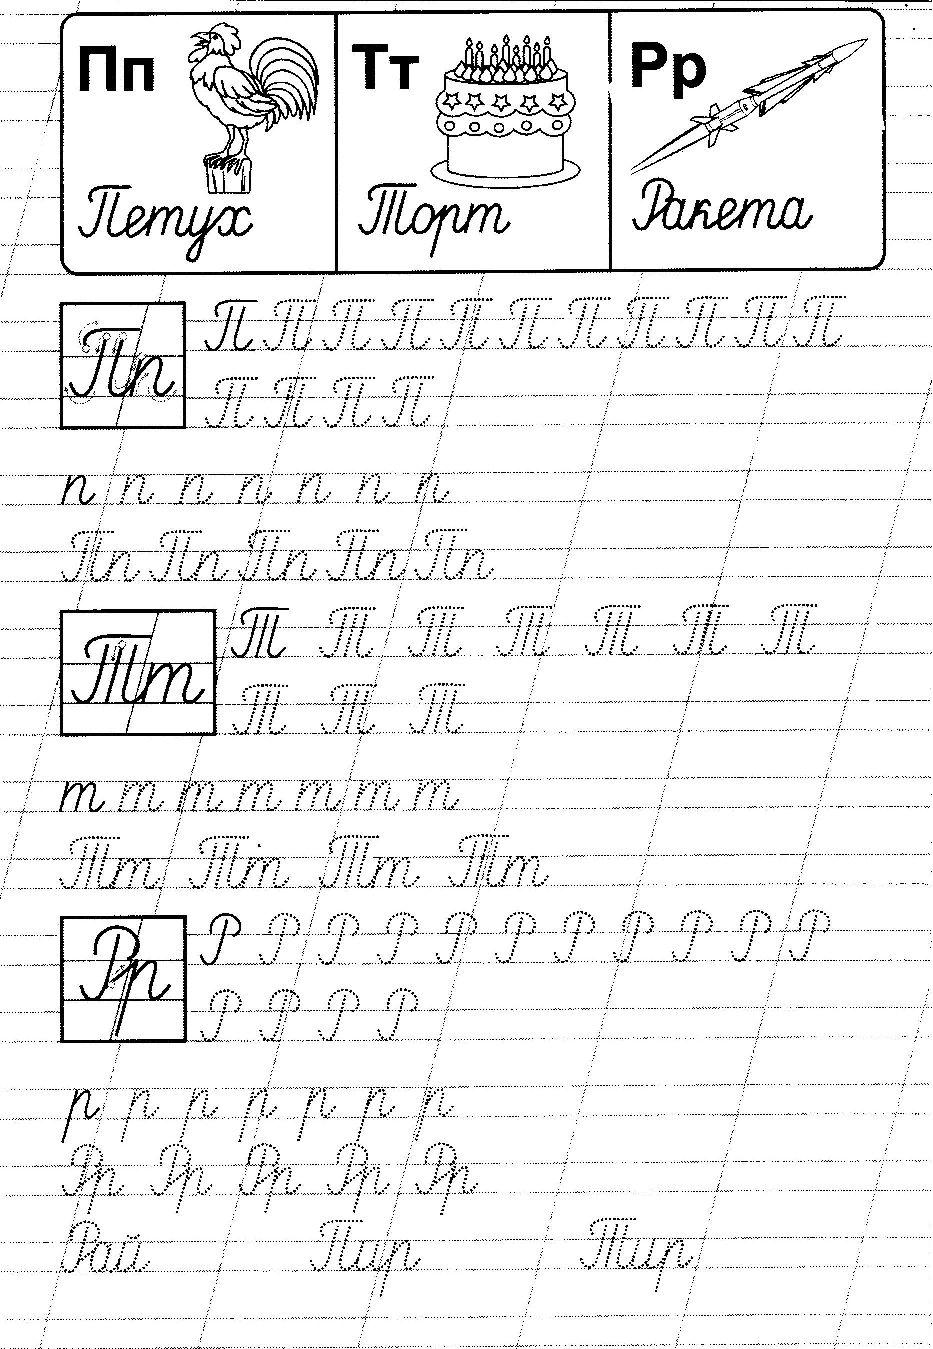 Пп Тт Рр
Петух Торт Ракета
Пп П П П П П П П П П П П
П П П П
п п п п п п п
Пп Пп Пп Пп Пп
Тт Т Т Т Т Т Т Т
Т Т Т
т т т т т т т
Тт Тт Тт Тт
Рр Р Р Р Р Р Р Р Р Р Р Р
Р Р Р Р
р р р р р р р
Рр Рр Рр Рр Рр
Рай Пир Тир